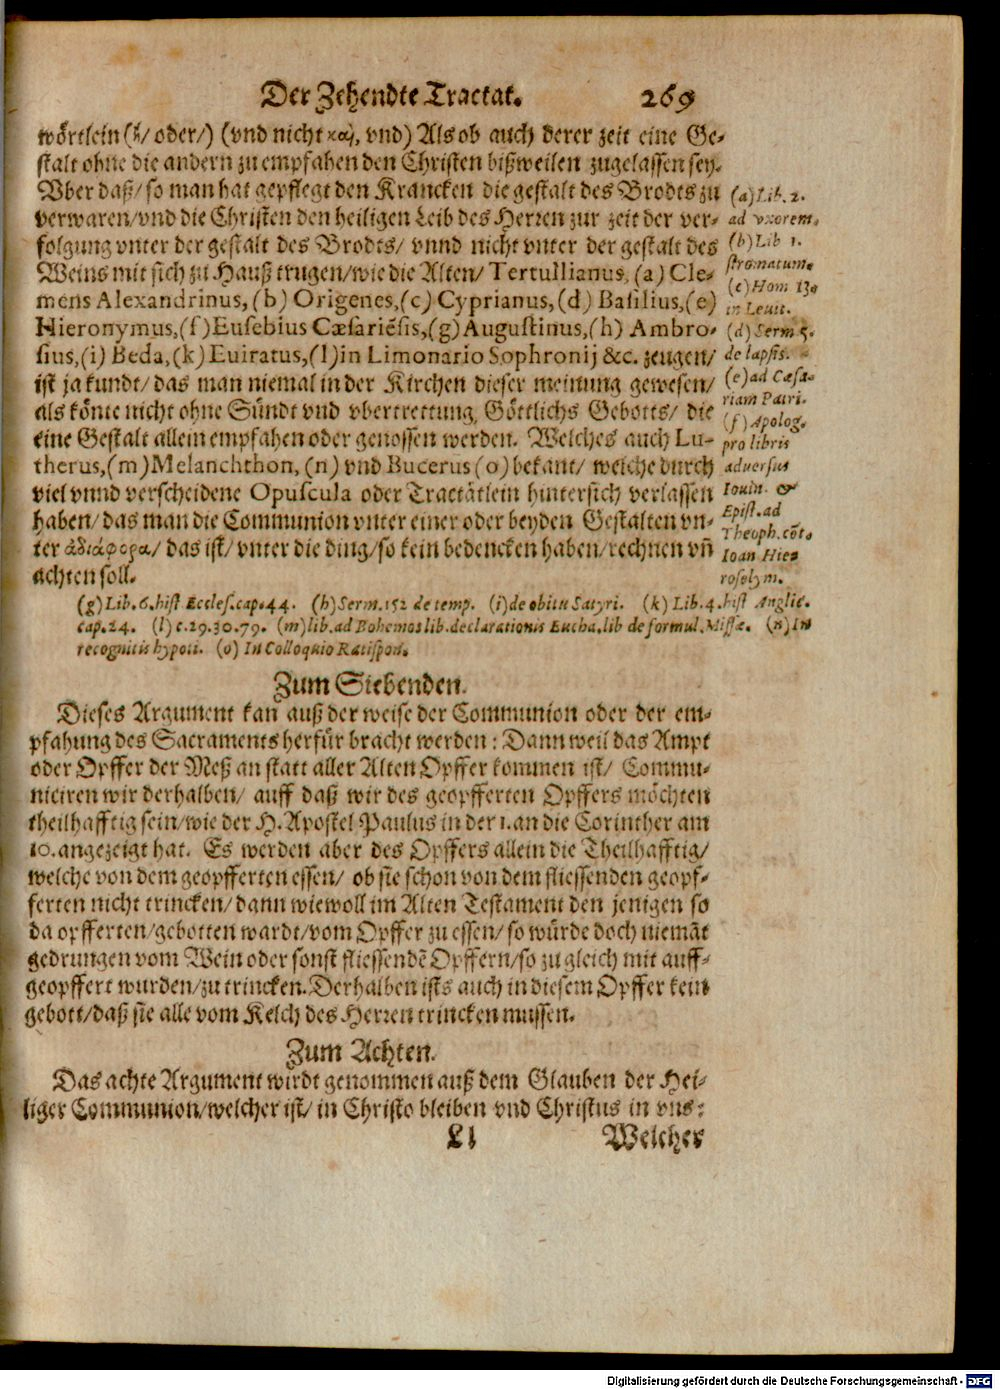 Der Zehendte Tractat. 269
wörtlein (ἢ/ oder/) (vnd nicht καὶ, vnd) Als ob auch derer zeit eine Ge-
stalt ohne die andern zu empfahen den Christen bißweilen zugelassen sey.
Vber daß/ so man hat gepflegt den Krancken die gestalt des Brodts zu
verwaren/ vnd die Christen den heiligen Leib des Herren zur zeit der ver-
folgung vnter der gestalt des Brodts/ vnnd nicht vnter der gestalt des
Weins mit sich zu Hauß trugen/ wie die Alten/ Tertullianus, (a) Cle-
mens Alexandrinus, (b) Origenes, (c) Cyprianus, (d) Basilius, (e)
Hieronymus, (f) Eusebius Cæsariēsis, (g) Augustinus, (h) Ambro-
sius, (i) Beda, (k) Euiratus, (l) in Limonario Sophronij &c. zeugen/
ist ja kundt/ das man niemal in der Kirchen dieser meinung gewesen/
als könte nicht ohne Sündt vnd vbertrettung Göttlichs Gebotts/ die
eine Gestalt allein empfahen oder genossen werden. Welches auch Lu-
therus, (m) Melanchthon, (n) vnd Bucerus (o) bekant/ welche durch
viel vnnd verscheidene Opuscula oder Tractätlein hintersich verlassen
haben/ das man die Communion vnter einer oder beyden Gestalten vn-
ter ἀδιάφορα/ das ist/ vnter die ding/ so kein bedencken haben/ rechnen vñ
achten soll.
(a) Lib. 2.
ad vxorem.
(b) Lib 1.
stromatum.
(c) Hom 13.
in Leuit.
(d) Serm 5.
de lapsis.
(e) ad Cæsa-
riam Patri.
(f) Apolog.
pro libris
adversus
Iouin. &
Epist. ad
Theoph. cōt.
Ioan Hie-
rosolym.
(g) Lib. 6. hist Eccles. cap. 44. (h) Serm. 152 de temp. (i) de obitu Satyri. (k) Lib. 4. hist Anglic.
cap. 24. (l) c. 29. 30. 79. (m) lib. ad Bohemos lib. declarationis Eucha. lib de formul. Missæ. (n) In
recognitis hypoti. (o) In Colloquio Ratispon.
Zum Siebenden.
Dieses Argument kan auß der weise der Communion oder der em-
pfahung des Sacraments herfür bracht werden: Dann weil das Ampt
oder Opffer der Meß an statt aller Alten Opffer kommen ist/ Commu-
niciren wir derhalben/ auff daß wir des geopfferten Opffers möchten
theilhafftig sein/ wie der H. Apostel Paulus in der 1. an die Corinther am
10. angezeigt hat. Es werden aber des Opffers allein die Theilhafftig/
welche von dem geopfferten essen/ ob sie schon von dem fliessenden geopf-
ferten nicht trincken/ dann wiewoll im Alten Testament den jenigen so
da opfferten/ gebotten wardt/ vom Opffer zu essen/ so würde doch niemāt
gedrungen vom Wein oder sonst fliessendē Opffern/ so zu gleich mit auff-
geopffert wurden/ zu trincken. Derhalben ists auch in diesem Opffer kein
gebott/ daß sie alle vom Kelch des Herren trincken mussen.
Zum Achten.
Das achte Argument wirdt genommen auß dem Glauben der Hei-
liger Communion/ welcher ist/ in Christo bleiben vnd Christus in vns:
Ll Welcher
Digitalisierung gefördert durch die Deutsche Forschungsgemeinschaft - DFG